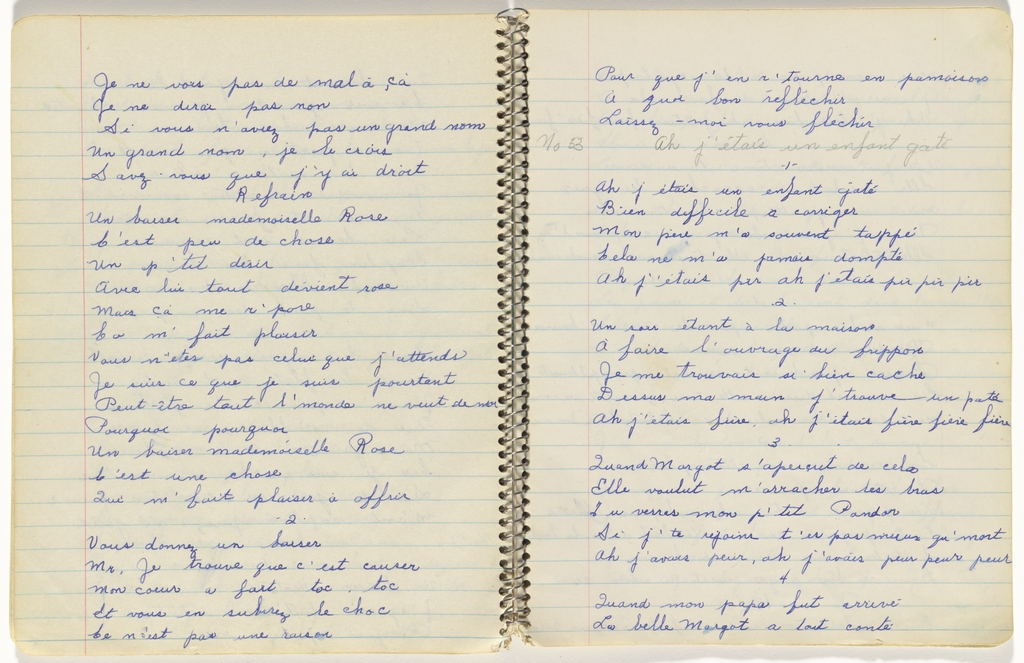 Je ne vois pas de mal à ça
Je ne dirai pas non
Si vous n'aviez pas un grand nom
Un grand nom, je le crois
Savez-vous que j'y ai droit
Refrain
Un baiser mademoiselle Rose
C'est peu de chose
Un p'tit désir
Avec lui tout devient rose
Mais ça me r'pose
Ça m' fait plaisir
Vous n'êtes pas celui que j'attends
Je suis ce que je suis pourtant
Peut-être tout l'monde ne veut de moi
Pourquoi pourquoi
Un baiser mademoiselle Rose
C'est une chose
Qui m' fait plaisir à offrir
-2-
Vous donnez un baiser
Mr, Je trouve que c'est causer
Mon coeur a fait toc, toc
Et vous en subirez le choc
Ce n'est pas une raison
Pour que j'en r'tourne en pamoison
à quoi bon réfléchir
Laissez-moi vous fléchir
No 53 Ah j'étais un enfant gaté
-1-
Ah j étais un enfant gaté
Bien difficile a corriger
Mon père m'a souvent tappé
Cela ne m'a jamais dompté
Ah j'étais pir ah j'étais pir pir pir
.2.
Un soir étant à la maison
A faire l'ouvrage du frippon
Je me trouvais si bien caché
Dessus ma main j'trouve un paté
Ah j'étais fière, ah j'étais fière fière fière
3
Quand Margot s'aperçut de cela
Elle voulut m'arracher les bras
Tu verras mon p'tit Pandor
Si j'te rejoins t'es pas mieux qu'mort
Ah j'avais peur, ah j'avais peur peur peur
4
Quand mon papa fut arrivé
La belle Margot a tout conté